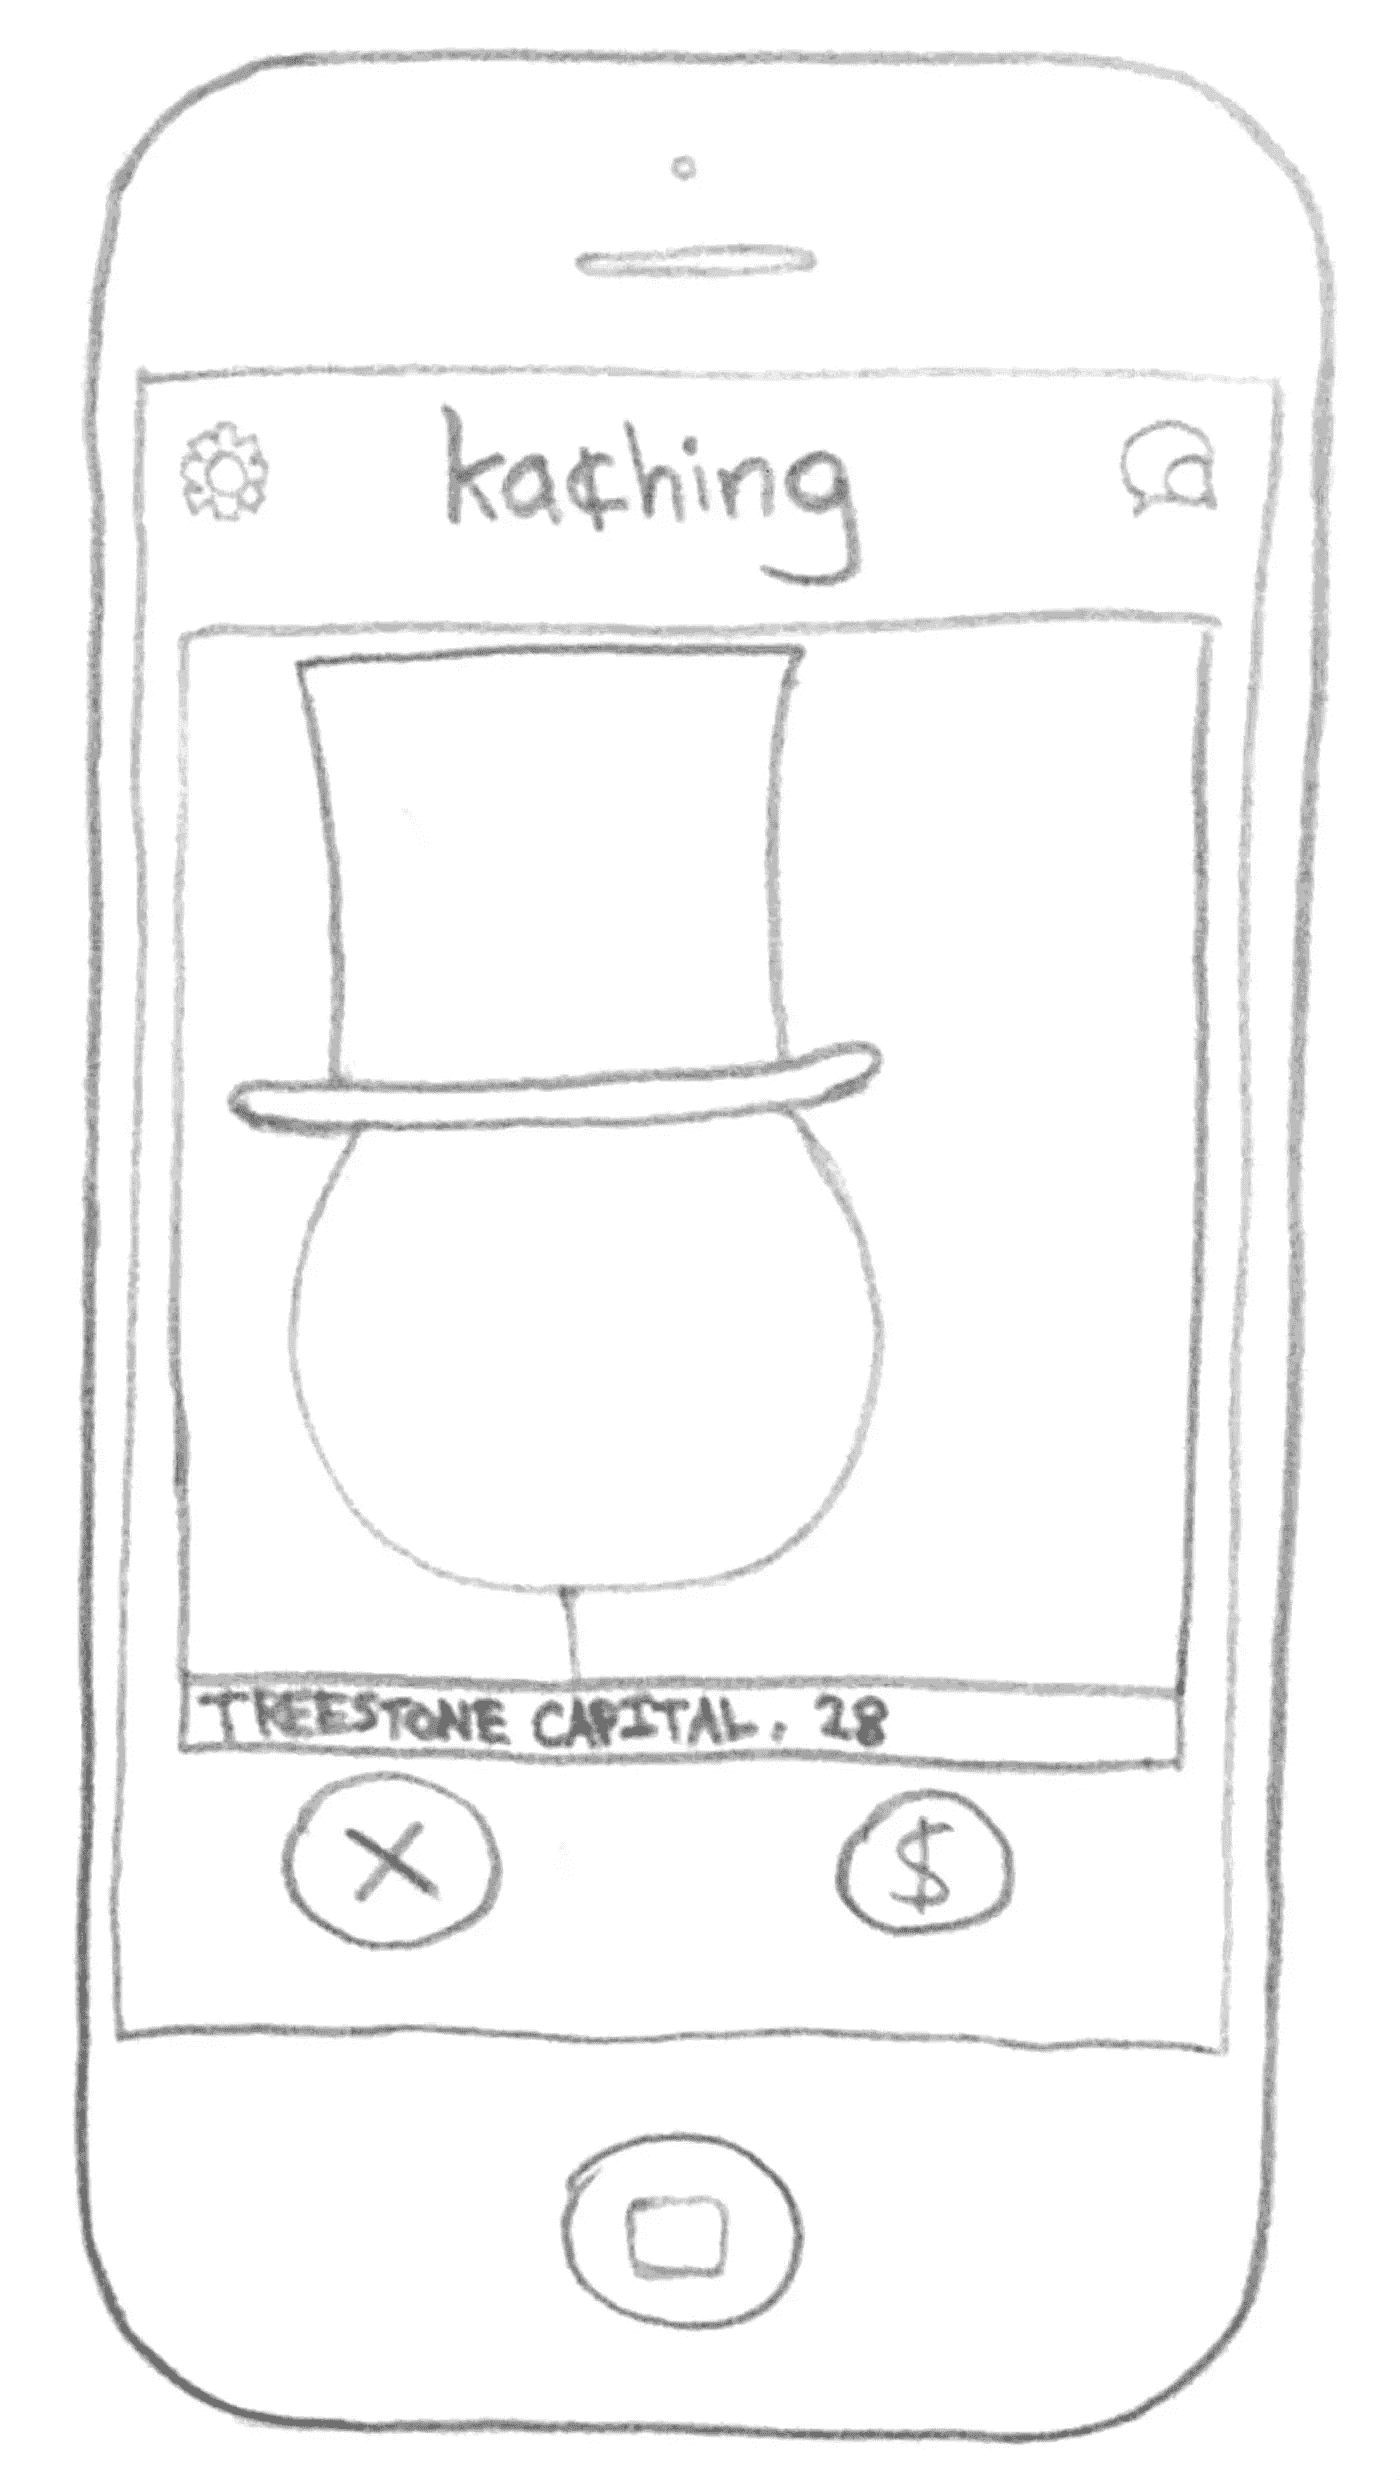 ka¢hing
TREESTONE CAPITAL, 28
X
$